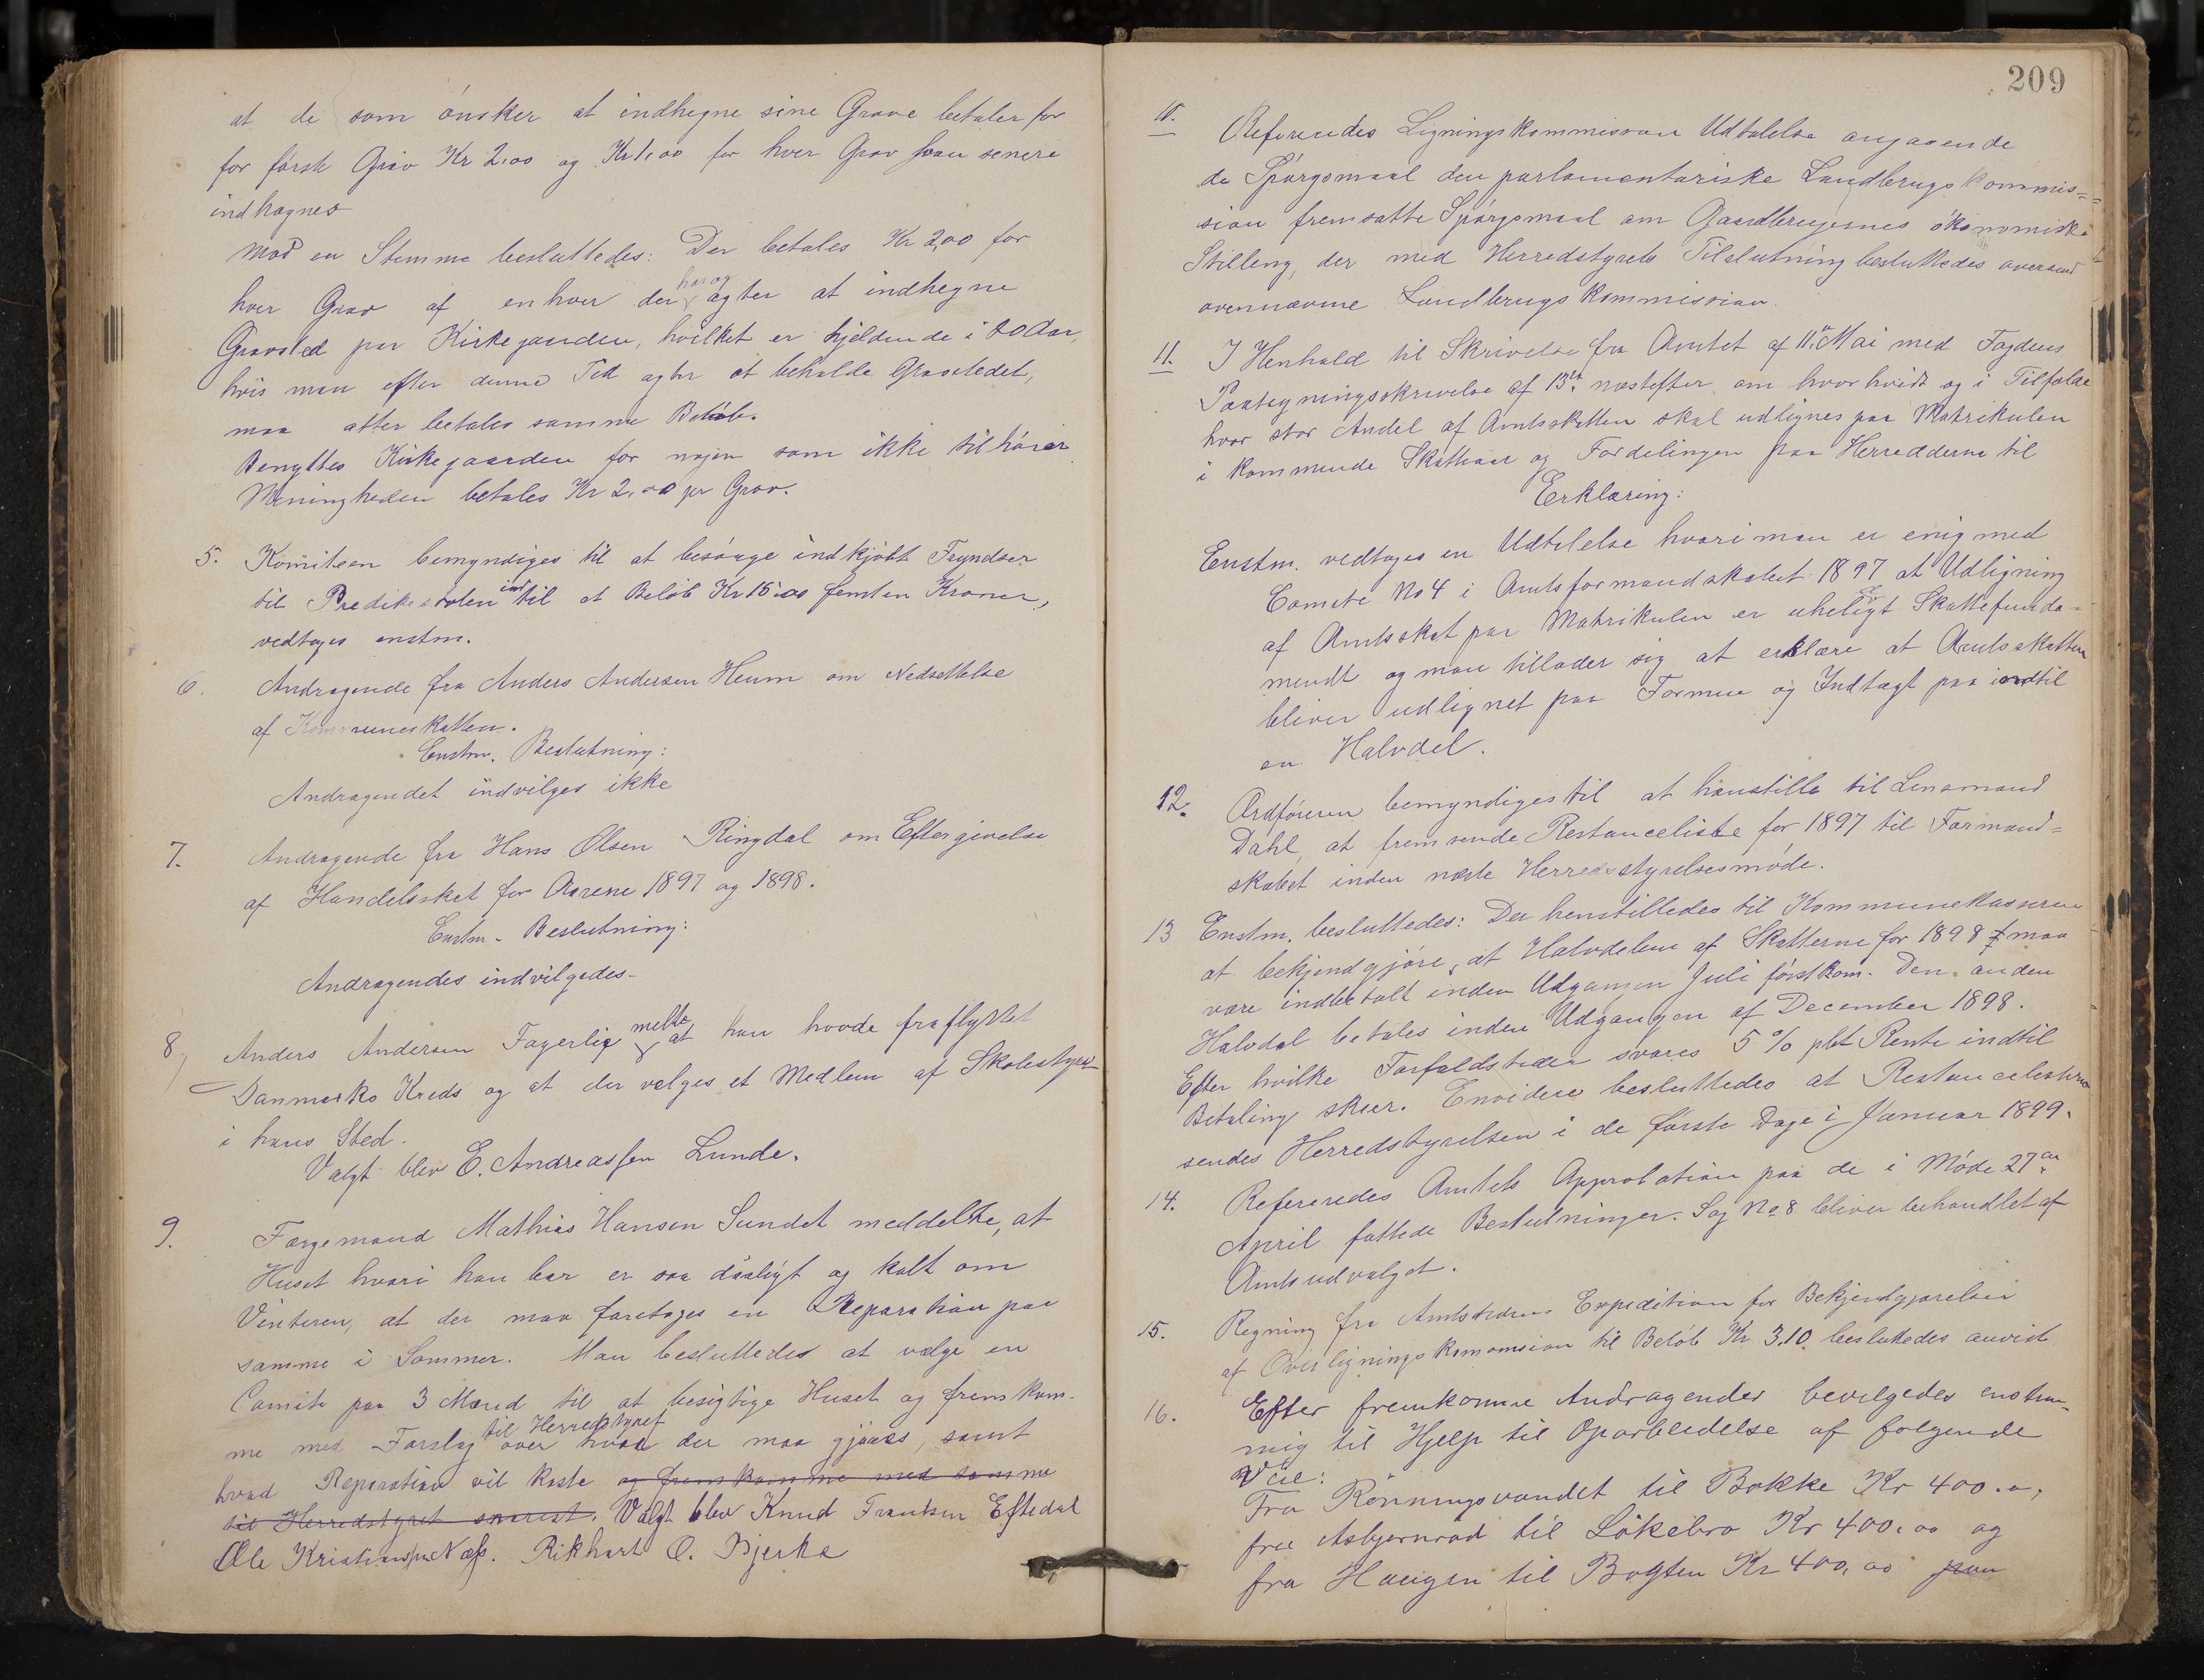 at de som ønsker at indhegne sine Grave betaler for
for første Grav Kr 2.00 og Kr 1.00 for hver Grav som senere
indhegnes
Mod en Stemme besluttedes: Der betales Kr 2,00 for
hver Grav af enhver der har og agter at indhegne
Gravsted paa Kirkegaarden, hvilket er gjeldende i 20 Aar,
hvis man efter denne Tid agter at beholde Gravstedet,
maa atter betales samme Beløb.
Benyttes Kirkegaarden for nogen som ikke tilhører
Meningheden betales Kr 2.00 pr Grav.
5. Komiteen bemyndiges til at besørge indkjøbt Fryndser
til Predikestolen indtil et Beløb Kr 15.00 femten Kroner,
vedtages enstm.
6. Andragende fra Anders Andersen Heum om Nedsettelse
af Kommuneskatten.
Enstm. Beslutning:
Andragendet indvilges ikke
7. Andragende fra Hans Olsen Ringdal om Eftergivelse
af Handelsskat for Aarene 1897 og 1898.
Enstm. Beslutning:
Andragendes indvilgedes.
8, Anders Andersen Fagerlie melte at han havde fraflyttet
Danmarks Kreds og at der velges et Medlem af Skolestyret
i hans Sted.
Valgt blev E. Andreassen Lunde.
9. Færgemand Mathias Hansen Sundet meddelte, at
Huset hvori han bor er saa daaligt og kalt om
Vinteren, at der maa foretages en Reparation paa
samme i Sommer. Man besluttedes at vælge en
Comite paa 3 Mænd til at besigtige Huset og fremkom-
me med Forslag til Herredstyret over hvad der maa gjøres, samt
hvad Reparation vil koste og fremkomme med samme
til Herredstyret snarest. Valgt blev Knud Frantsen Eftedal
Ole Kristiansen Næss. Rikhart O. Bjerke
209
10. Refereredes Ligningskommission Udtalelse angaaende
de Spørgsmaal den parlamentariske Landbrugskommis-
sion fremsatte Spørgsmaal om Gaardbrugernes økonomiske
Stilling, der med Herredstyrets Tilslutning besluttedes oversend
ovennævnte Landbrugskommission.
11. I Henhold til Skrivelse fra Amtet af 11te Mai med Fogdens
Paategningsskrivelse af 13de næstefter om hvorvidt og i Tilfælde
hvor stor Andel af Amtsskatten skal udlignes paa Matrikulen
i kommende Skatteaar og Fordelingen paa Herredderne til
Erklæring:
Enstm. vedtages en Udtalelse hvori man er enig med
Comite No 4 i Amtsformandskabet 1897 at Udligning
af Amtsskat paa Matrikulen er uheligt Skattefunda-
mendt og man tillader sig at erklære at Amtsskatten
bliver udlignet paa Formue og Indtægt paa indtil
en Halvdel.
12. Ordføreren bemyndiges til at henstille til Lensmand
Dahl, at fremsende Restanceliste for 1897 til Formand-
skabet inden næste Herredsstyrelsesmøde.
13 Enstm. besluttedes: Der henstilledes til Kommunekassereren
at bekjendgjøre, at Halvdelen af Skatterne for 1898 maa
være indbetalt inden Udgangen Juli førstkom. Den anden
Halvdel betales inden Udgangen af December 1898.
Efter hvilke Forfaldstider svares 5 % pCt Rente indtil
Betaling skeer. Envidere besluttedes at Restancelisterne
sendes Herredstyrelsen i de første Dage i Januar 1899.
14. Refereredes Amtets Approbation paa de i Møde 27de
April fattede Beslutninger. Sag No 8 bliver behandlet af
Amtsudvalget.
15. Regning fra Amtstidens Expedition for Bekjendgjørelsen
af Overligningskommission til Beløb Kr 3.10 besluttedes anvist
16. Efter fremkomne Andragender bevilgedes enstem-
mig til Hjelp til Oparbeidelse af følgende
Veie:
Fra Rønningsvandet til Bakke Kr 400.00,
fra Asbjørnrød til Løkebro Kr 400.00 og
fra Haugen til Bogten Kr 400.00 paa